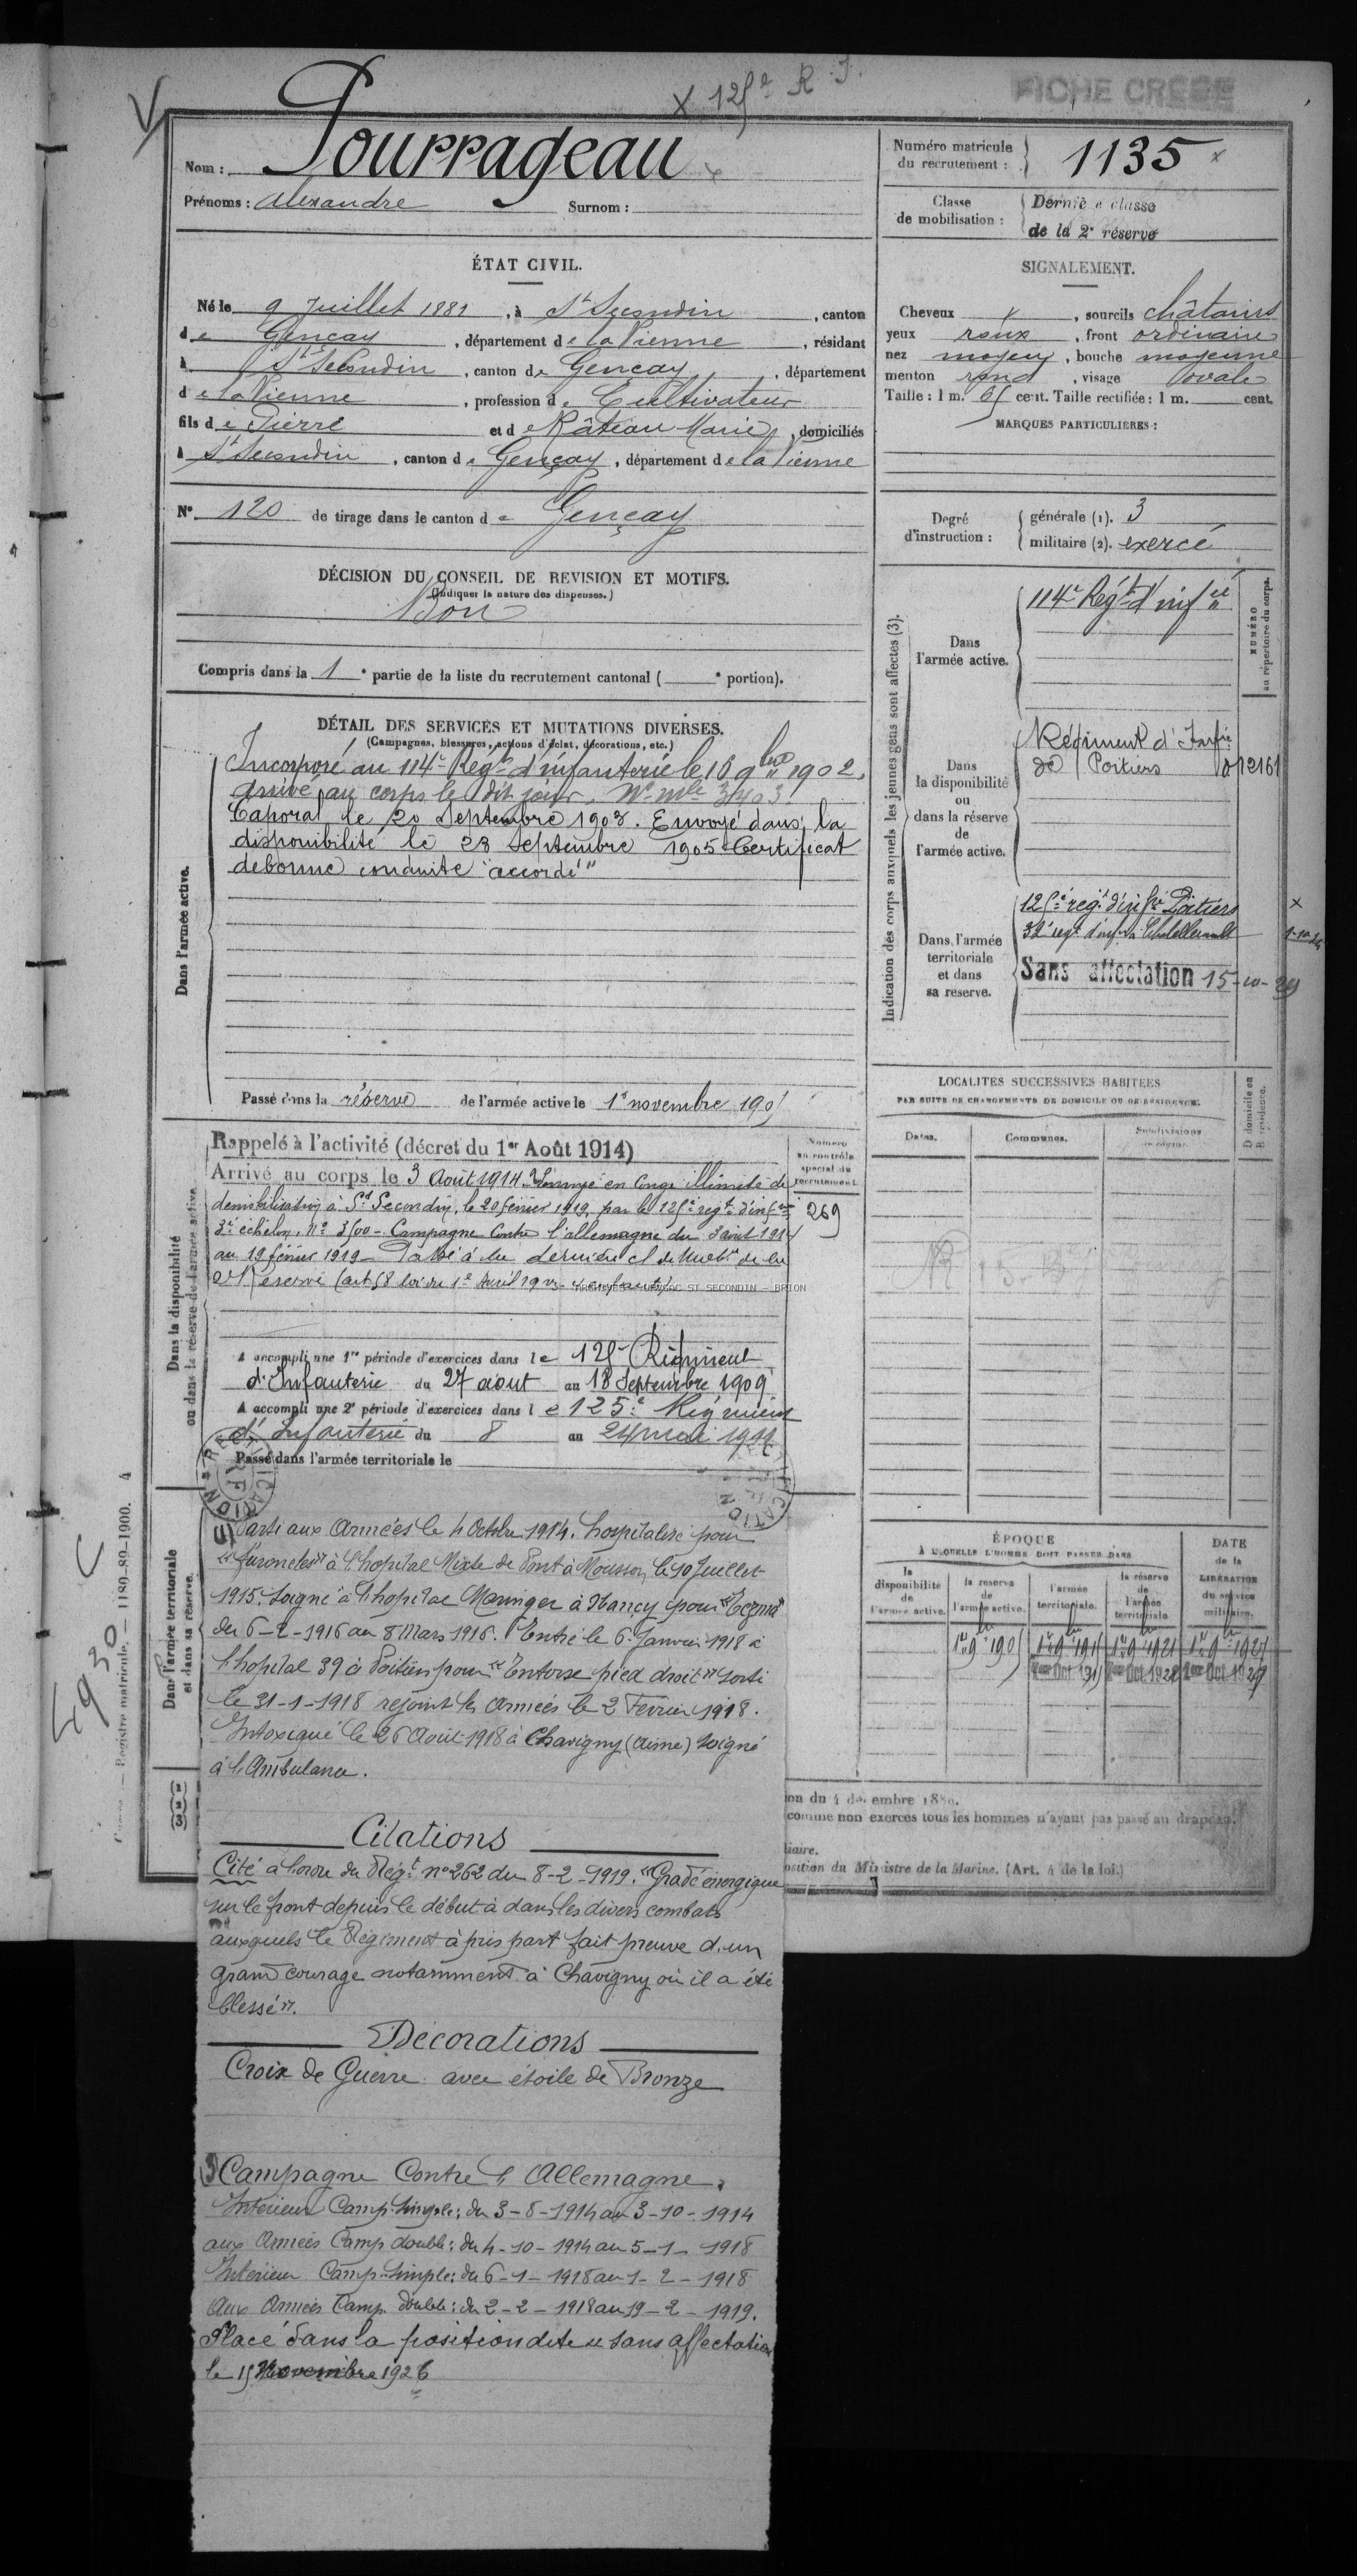 X 125e R.I.
FICHE CRÉÉE
Nom : Pourrageau
Prénoms : Alexandre Surnom :
Numéro matricule du recrutement : 1135
Classe de mobilisation : Dernière classe
de la 2e réserve
ÉTAT CIVIL.
Né le 9 Juillet 1881, à St Secondin, canton
de Gençay, département de la Vienne, résidant
à St Secondin, canton de Gençay, département
de la Vienne, profession de Cultivateur
fils de Pierre et de Râteau Marie, domiciliés
à St Secondin, canton de Gençay, département de la Vienne
N° 120 de tirage dans le canton de Gençay
SIGNALEMENT.
Cheveux, sourcils châtains
yeux roux, front ordinaire
nez moyen, bouche moyenne
menton rond, visage ovale
Taille : 1 m. 65 cent. Taille rectifiée : 1 m. cent.
MARQUES PARTICULIÈRES :
Degré d'instruction :
générale (1). 3
militaire (2). exercé
DÉCISION DU CONSEIL DE REVISION ET MOTIFS.
(Indiquer la nature des dispenses.)
Bon
Compris dans la 1e partie de la liste du recrutement cantonal ( e portion).
DÉTAIL DES SERVICES ET MUTATIONS DIVERSES.
(Campagnes, blessures, actions d'éclat, décorations, etc.)
Dans l'armée active.
Incorporé au 114e Regt d'infanterie le 16 9bre 1902.
Arrivé au corps le dit jour, No mle 3403.
Caporal le 20 Septembre 1903. Envoyé dans la
disponibilité le 23 Septembre 1905 Certificat
de bonne conduite "accordé"
Passé dans la réserve de l'armée active le 1r novembre 1905
Indication des corps auxquels les jeunes gens sont affectés (3).
Dans l'armée active.
114e Régt d'infie
NUMÉRO au répertoire du corps.
Dans la disponibilité ou dans la réserve de l'armée active.
Régiment d'Infie
de Poitiers 012161
Dans l'armée territoriale et dans sa reserve.
125e régt d'infie Poitiers X
32e regt d'infie Chatellerault
Sans affectation 15-10-
LOCALITÉS SUCCESSIVES HABITÉES
PAR SUITE DE CHANGEMENTS DE DOMICILE OU DE RÉSIDENCE.
Dates. Communes. Subdivisions de région.
D domicile ou R résidence.
Dans la disponibilité
ou dans la réserve de l'armée active.
Rappelé à l'activité (décret du 1er Août 1914)
Numéro au contrôle spécial du recrutement
269
Arrivé au corps le 3 Août 1914. Renvoyé en congé illimité de
démobilisation à St Secondin, le 20 février 1919, par le 125e regt d'infie
3e échelon, No 3500 - Campagne Contre l'allemagne du 3 août 1914
au 19 février 1919 - Passé à la dernière cl de Mobon de la
2e Réserve (art 58 loi du 1e Avril 1923
ST SECONDIN - BRION
A accompli une 1re période d'exercices dans le 125e Régiment
d'Infanterie du 27 aout au 18 Septembre 1909
A accompli une 2e période d'exercices dans le 125e Régiment
d'Infanterie du 8 au 24 mai 1911
Passé dans l'armée territoriale le
Dans l'armée territoriale
et dans sa réserve.
Parti aux Armées le 4 Octobre 1914. hospitalisé pour
"furoncles" à l'hopital Mixte de Pont à Mousson, le 10 Juillet
1915. Soigné à l'hopital Maringer à Nancy pour "Eczma"
du 6-2-1916 au 8 Mars 1916. Entré le 6 Janvier 1918 à
l'hopital 39 à Poitiers pour "Entorse pied droit" sorti
le 31-1-1918 rejoint les Armées le 2 Fevrier 1918.
Intoxiqué le 26 Août 1918 à Chavigny (Aisne) soigné
à l'Ambulance.
Citations
Cité à l'ordre du Régt no 262 du 8-2-1919. "Gradé énergique
sur le front depuis le début à dans les divers combats
auxquels le Régiment à pris part fait preuve d'un
grand courage notamment à Chavigny où il a été
blessé".
Décorations
Croix de Guerre avec étoile de Bronze
Campagne Contre l'Allemagne.
Intérieur Camp. Simple : du 3-8-1914 au 3-10-1914
aux Armées Camp double : du 4-10-1914 au 5-1-1918
Intérieur Camp. Simple : du 6-1-1918 au 1-2-1918
Aux Armées Camp. double : du 2-2-1918 au 19-2-1919.
Placé dans la position dite "sans affectation
le 15 Novembre 1926
ÉPOQUE
À LAQUELLE L'HOMME DOIT PASSER DANS
la disponibilité de l'armée active.
la réserve de l'armée active.
l'armée territoriale.
la réserve de l'armée territoriale.
DATE de la LIBÉRATION du service militaire.
1er 9bre 1905 1er 9bre 1915 1er 9bre 1921 1er 9bre 1927
ion du 4 décembre 1889.
comme non exercés tous les hommes n'ayant pas passé au drapeau.
liaire.
osition du Ministre de la Marine. (Art. 4 de la loi.)
Registre matricule. — 1180-89-1900. 4